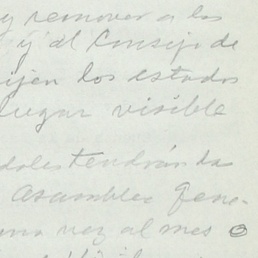 y remover a los
y al Consejo de
ijen los estados
lugar visible
doles tendrán la
Asamblea Gene-
una vez al mes o